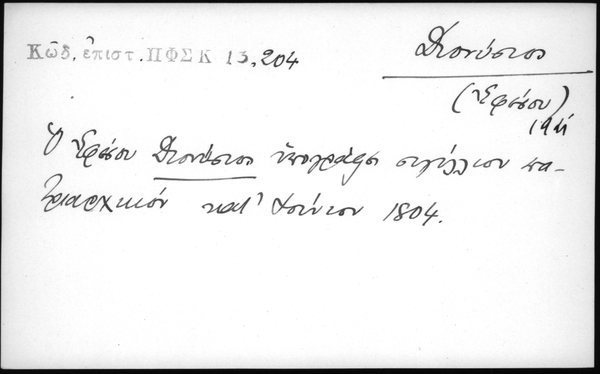 Κῶδ. ἐπιστ. ΠΦΣΚ 13, 204
Διονύσιος
(Ἐρέσου)
Ὁ Ἐρέσου Διονύσιος ὑπογράφει σιγίλλιον πα-
τριαρχικόν κατ' Ἰούνιον 1804.